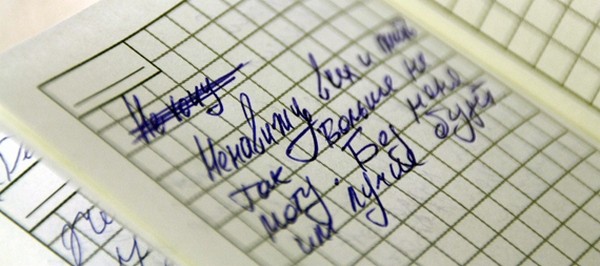 Не хочу
Ненавижу всех и
так Больше не
могу. Без меня
им лучше будет